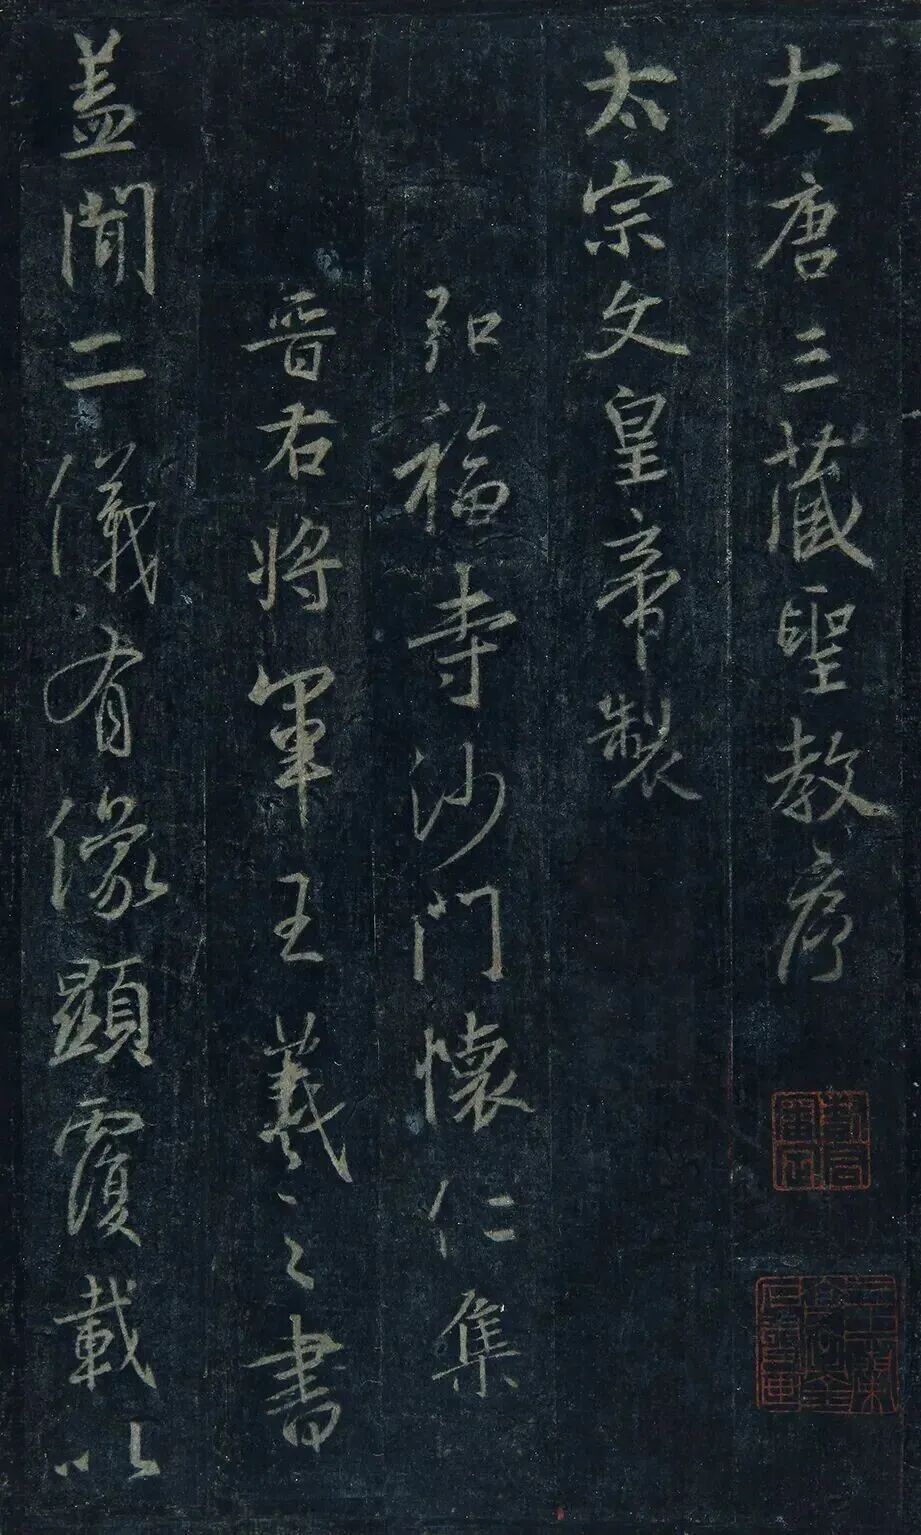 大唐三藏聖教序
太宗文皇帝製
弘福寺沙門懷仁集
晉右將軍王羲之書
盖聞二儀有像顯覆載以